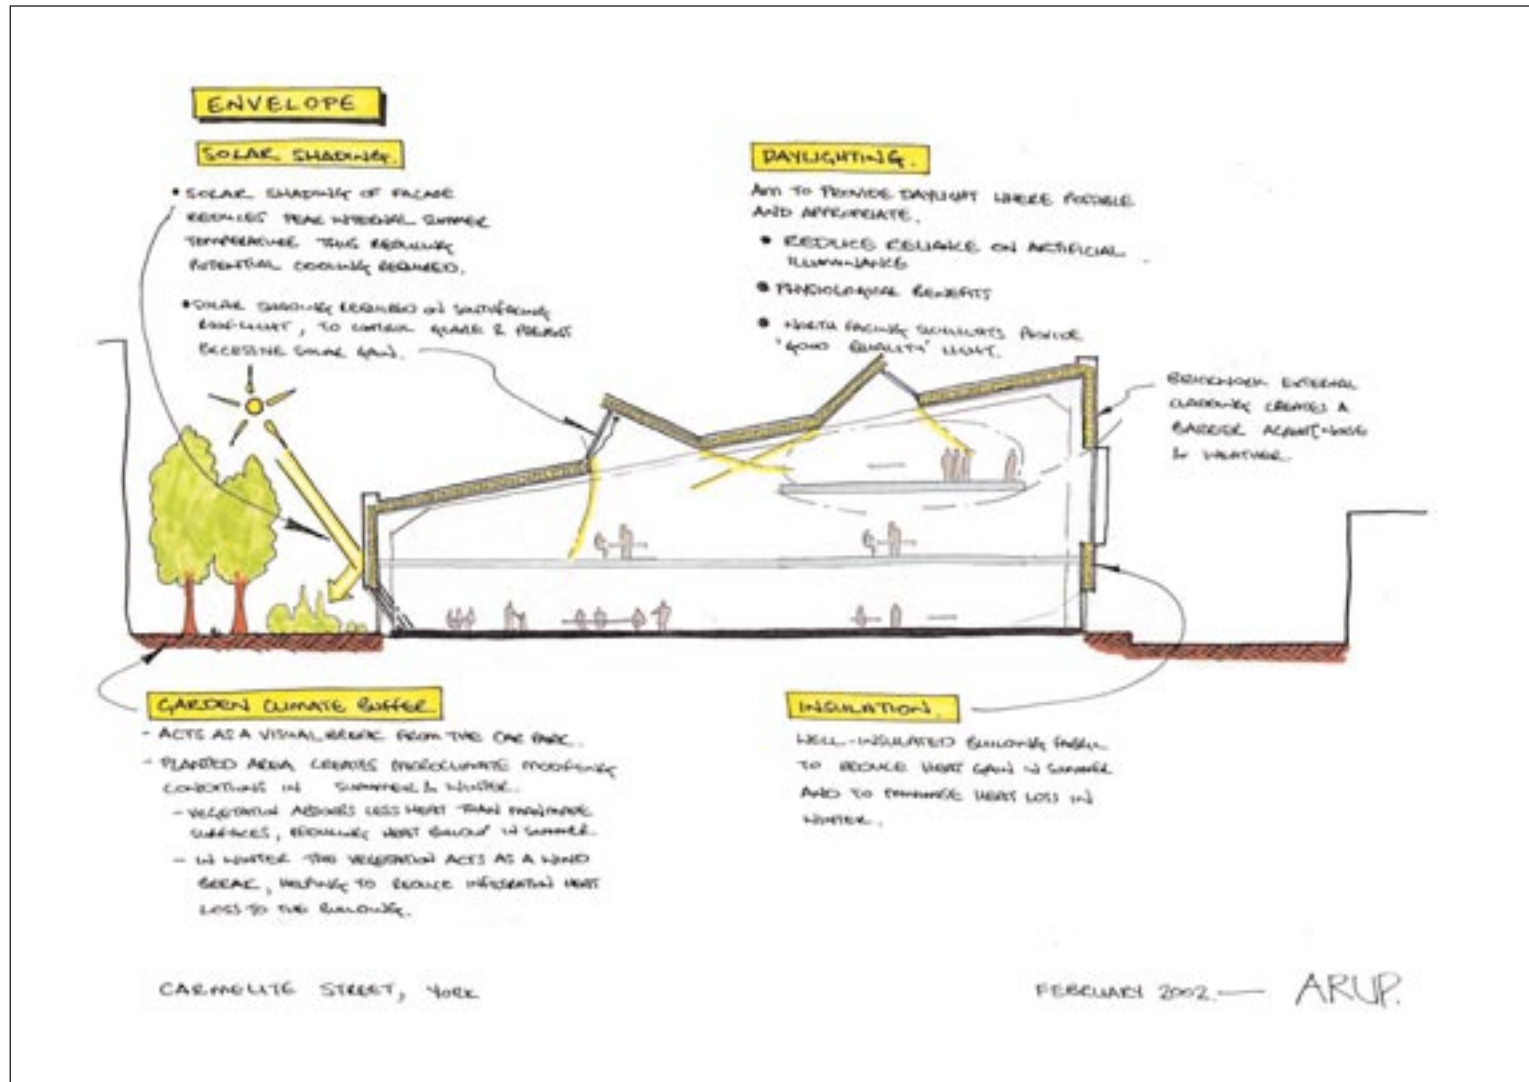 ENVELOPE
SOLAR SHADING.
• SOLAR SHADING OF FACADE
REDUCES PEAK INTERNAL SUMMER
TEMPERATURE THUS REDUCING
POTENTIAL COOLING REQUIRED.
• SOLAR SHADING REQUIRED ON SOUTH FACING
ROOFLIGHT, TO CONTROL GLARE & PREVENT
EXCESSIVE SOLAR GAIN.
DAYLIGHTING.
AIM TO PROVIDE DAYLIGHT WHERE POSSIBLE
AND APPROPRIATE.
• REDUCE RELIANCE ON ARTIFICIAL
ILLUMINANCE
• PHYSIOLOGICAL BENEFITS
• NORTH FACING SKYLIGHTS PROVIDE
'GOOD QUALITY' LIGHT.
BRICKWORK EXTERNAL
CLADDING CREATES A
BARRIER AGAINST NOISE
& WEATHER.
GARDEN CLIMATE BUFFER
- ACTS AS A VISUAL BREAK FROM THE CAR PARK.
- PLANTED AREA CREATES MICROCLIMATE MODIFYING
CONDITIONS IN SUMMER & WINTER.
- VEGETATION ABSORBS LESS HEAT THAN MANMADE
SURFACES, REDUCING HEAT BUILDUP IN SUMMER.
- IN WINTER THE VEGETATION ACTS AS A WIND
BREAK, HELPING TO REDUCE INFILTRATION HEAT
LOSS TO THE BUILDING.
INSULATION.
WELL-INSULATED BUILDING FABRIC
TO REDUCE HEAT GAIN IN SUMMER
AND TO MINIMISE HEAT LOSS IN
WINTER.
CARMELITE STREET, YORK
FEBRUARY 2002. — ARUP.